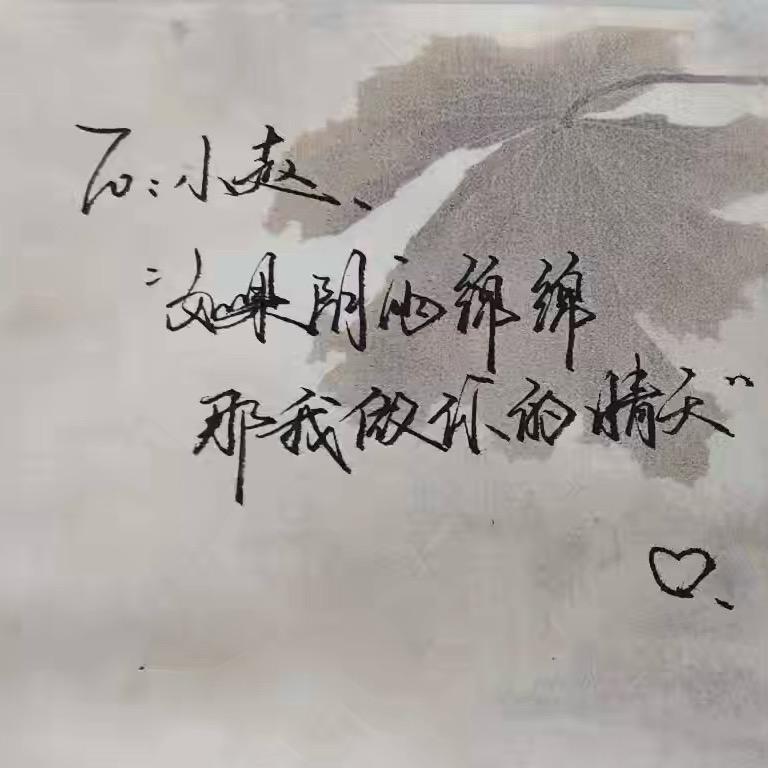 To:小赵、
"如果阴雨绵绵
那我做你的晴天"